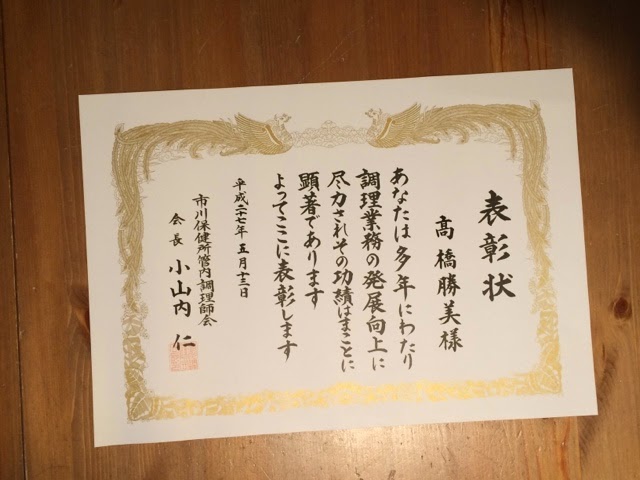 表彰状
髙橋勝美様
あなたは多年にわたり
調理業務の発展向上に
尽力されその功績はまことに
顕著であります
よってここに表彰します
平成二十七年五月十三日
市川保健所管内調理師会
会長 小山内 仁